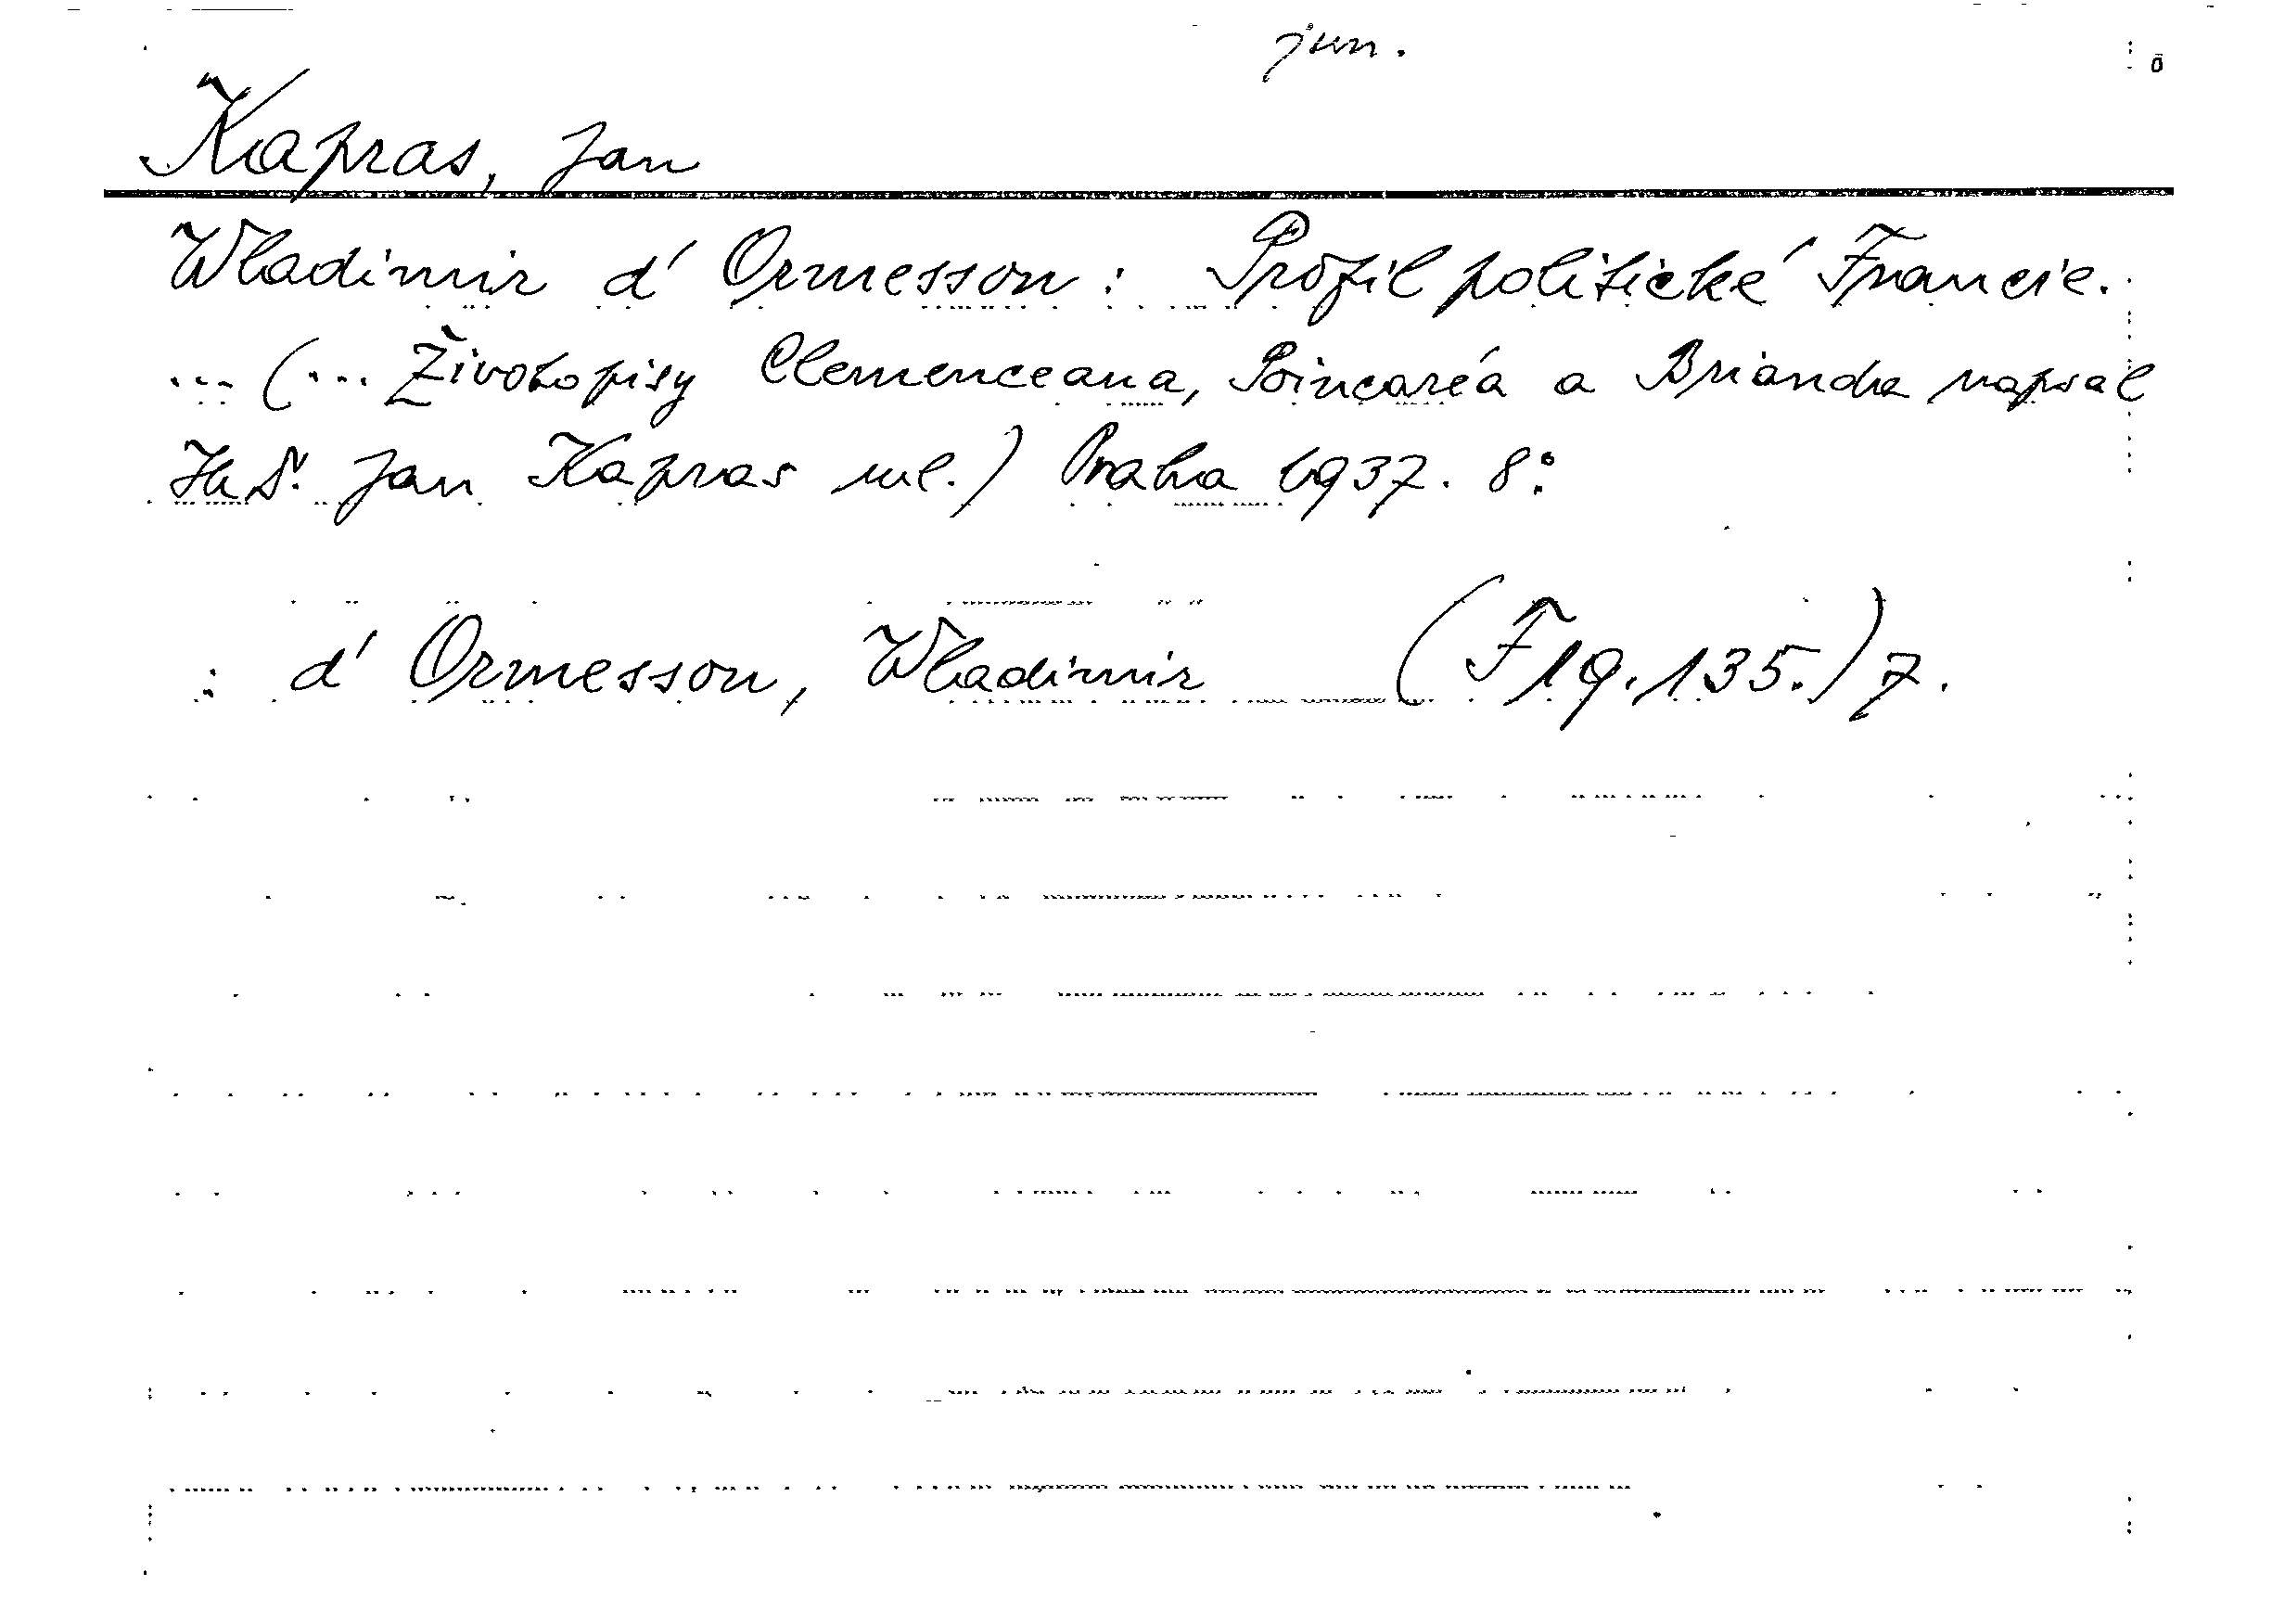 jun.
Kapras, Jan
Wladimir d' Ormesson: Profil politické Francie.
... (... Životopisy Clemenceaua, Poincaréa a Brianda napsal
Jan Kapras ml.) Praha 1937. 8:
: d' Ormesson, Wladimir (F 19.135.) 7.